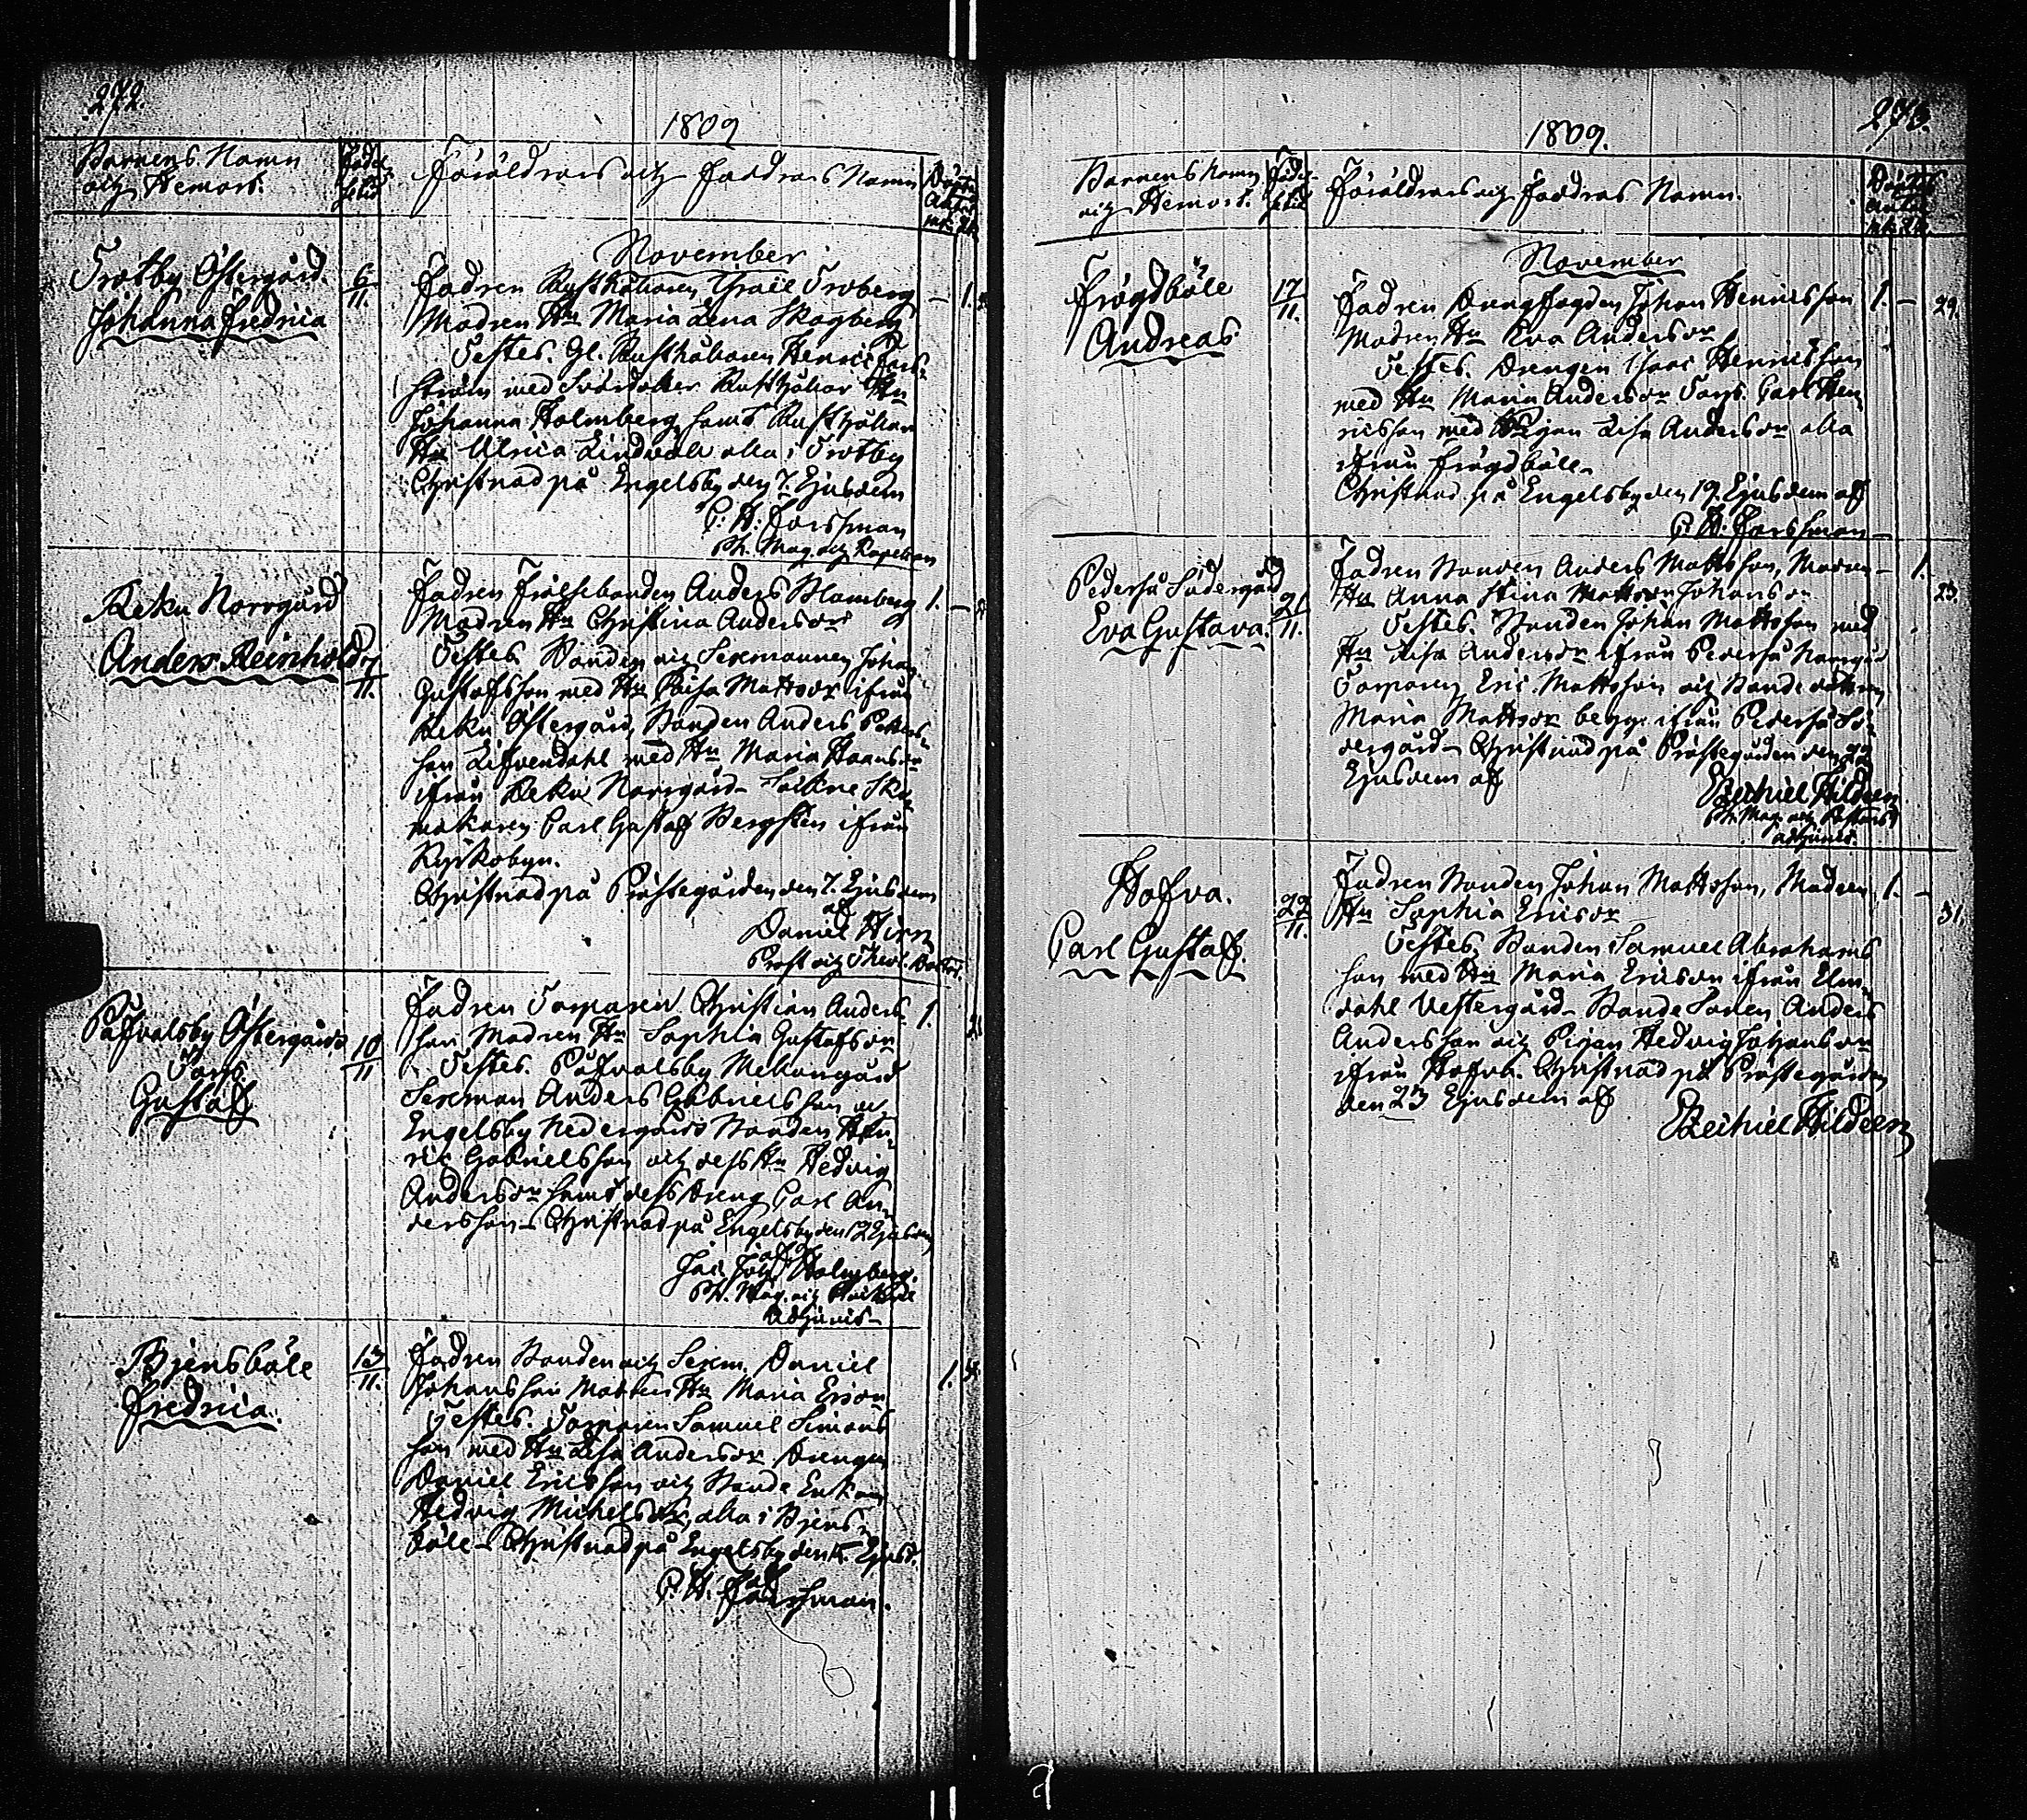 272.
1809
Barnens Namn
och Hemort.
Födel-
setid
Föräldrars och Faddrars Namn
November
Trotby Östergård.
Johanna Fredrica
6
11.
Fadren Rusthållaren Israel Troberg
Modren Hu Maria Lena Skogberg
Testes. Gl. Rusthållaren Henric Fors-
ström med Rusthållar Hu
Johanna Holmberg samt Rusthållar
Hu Ulrica Lindvall alla i Trotby
Christnad på Engelsby den 7. Ejusdem
C. H. Forssman
Ph. Mag. och Kapellan
Reku Norrgård
Anders Reinhold
11.
Fadren Frälsebonden Anders Blomberg
Modren Hu Christina Andersdr
Testes Bonden och Sexmannen Johan
Gustafsson med Hu Caisa Mattsdr ifrån
Reku Östergård, Bonden Anders Peters-
son Lifvendahl med Hu Maria Hansdr
ifrån Reku Norrgård Sockne Sko-
makaren Carl Gustaf Bergsten ifrån
Ryskobyn.
Christnad på Prästegården den 7. Ejusdem
af
Daniel Hirn
Prost och Theol. Doctor.
Påfvalsby Östergårds
Torp.
Gustaf
10
11
Fadren Torparen Christian Anders-
son Modren Hu Sophia Gustafsdr
Testes. Påfvalsby Mellangård
Sexman Anders Gabrielsson och
Engelsby Nedergårds Bonden Hen-
ric Gabrielsson och dess Hu Hedvig
Andersdr samt dess Dreng Carl An-
dersson Christnad på Engelsby den 12 Ejusdem
af
Joh Holmberg.
Ph. Mag. och
Adjunct
Bjensböle
Fredrica.
13
11.
Fadren Bonden och Sexm. Daniel
Johansson Modren Hu Maria Ersdr
Testes. Torparen Samuel Simons
son med Hu Lisa Andersdr Drengen
Daniel Ericsson och Bonde Enkan
Hedvig Michelsdr, alla i Bjens-
böle Christnad på Engelsby den Ejusd.
af
C. H. Forssman.
273.
1809.
Barnens Namn
och Hemort.
Födel-
setid
Föräldrars och Faddras Namn.
November
Frögdböle
Andreas
17
11.
Fadren Dreng Fogden Johan Henricsson
Modren Hu Eva Andersdr
Testes. Drengen Isaac Henricsson
med Hu Maria Andersdr Torp. Carl Hen
ricsson med Pigan Lisa Andersdr alla
ifrån Frögdböle
Christnad på Engelsby den 19. Ejusdem af
C. H. Forssman
1. — 29.
Pederså Södergård
Eva Gustava.
21
11.
Fadren Bonden Anders Mattsson, Modren
Hu Anna Stina Johansdr
Testes. Bonden Johan Mattsson med
Hu Lisa Andersdr ifrån Pederså Norrgård
Torparen Eric Mattsson och Bonde dottren
Maria Mattsdr begge ifrån Pederså Sö-
dergård Christnad på Prästegården den 22
Ejusdem af
Ezechiel Hildeen
Ph. Mag. och
adjunct.
Hofva.
Carl Gustaf.
22
11.
Fadren Bonden Johan Mattsson, Modren
Hu Sophia Ericsdr
Testes Bonden Samuel Abrahams
son med Hu Maria Ericsdr ifrån Elm-
dahl Vestergård Bonde Sonen Anders
Andersson och Pigan Hedvig Johansdr
ifrån Hofva. Christnad på Prästegården
den 23 Ejusdem af
Ezechiel Hildeen
1. — 31.